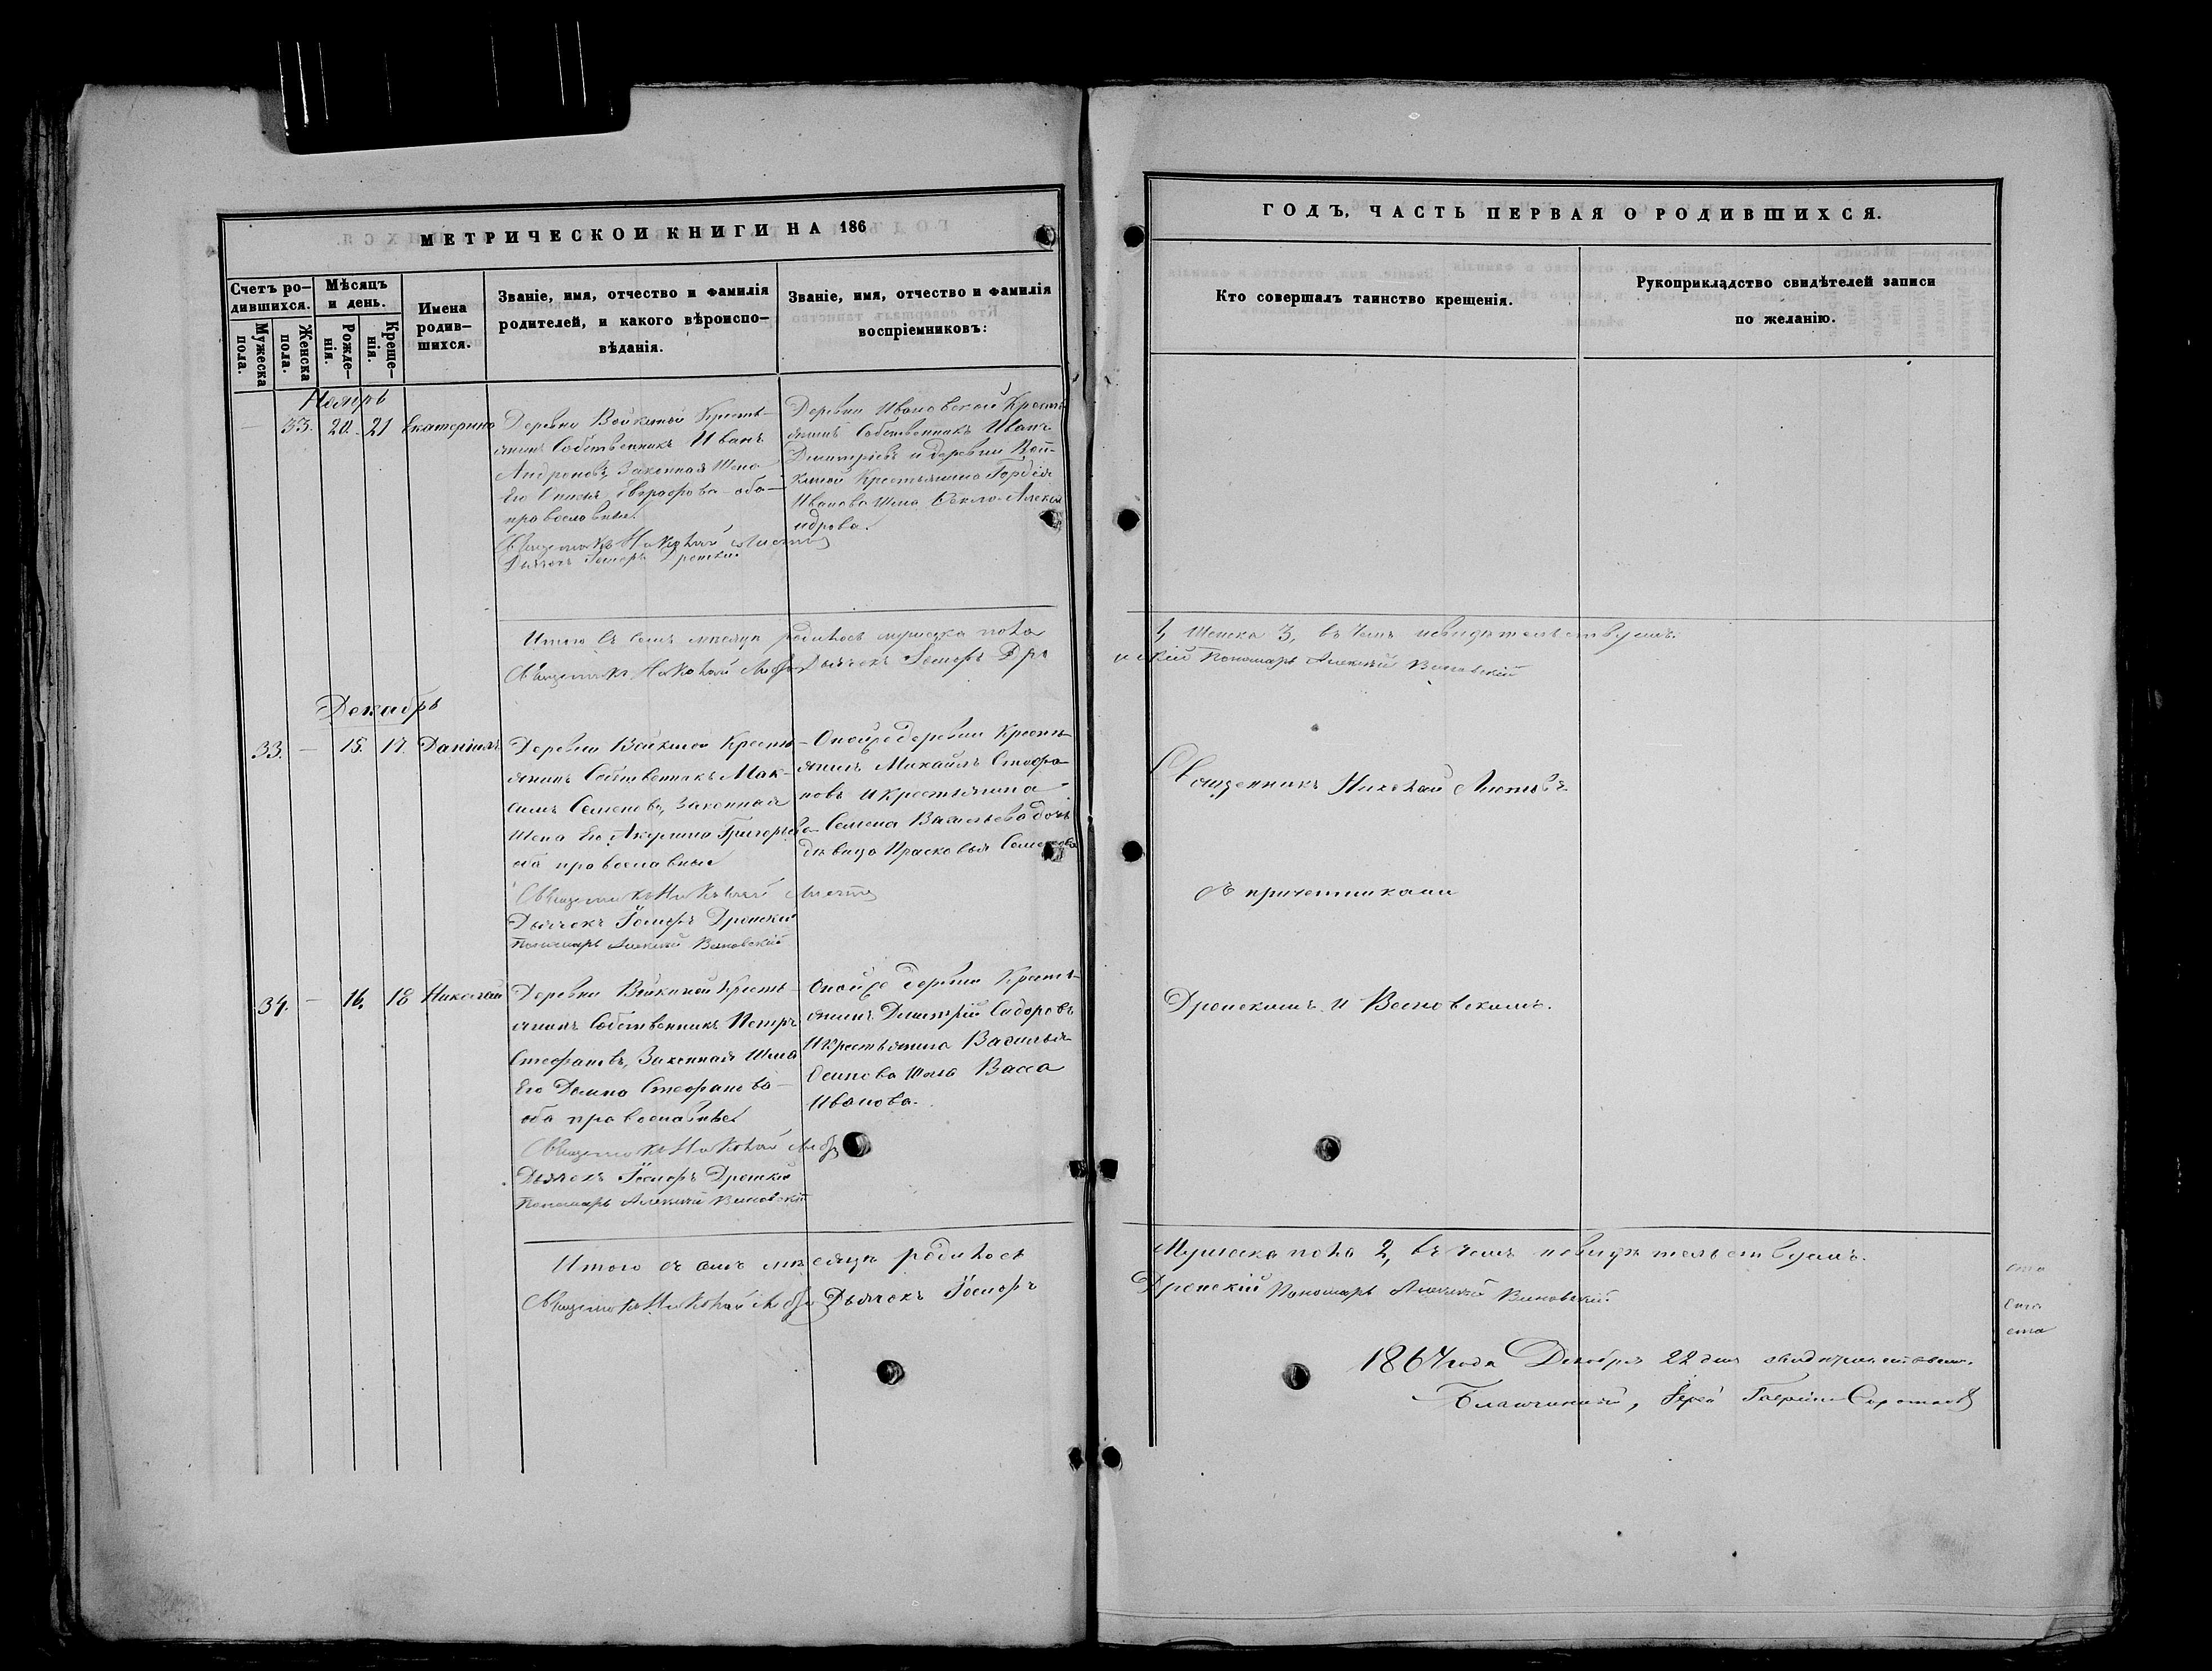 МЕТРИЧЕСКОЙ КНИГИ НА 186
Счетъ ро-
дившихся.
Мужеска
пола.
Женска
пола.
Мѣсяцъ
и день.
Рожде-
нія.
Креще-
нія.
Имена
родив-
шихся.
Званіе, имя, отчество и фамилія
родителей, и какого вѣроиспо-
вѣданія.
Званіе, имя, отчество и фамилія
воспріемниковъ:
Ноябрь
33. 20. 21 Екатерина
Деревни Войкиной Кресть-
янинъ Собственникъ Иванъ
Андреевъ, Законная Жена
Его оба
православные.
Священникъ Николай
Дьячекъ
Деревни Ивановской Кресть
янинъ Собственникъ Иванъ
Дмитріевъ и деревни Вой-
киной Крестьянина Гордѣя
Иванова Жена Ѳекла Алекса
ндрова.
Итого въ семъ мѣсяцѣ родилось мужеска пола
Священникъ Николай Дьячекъ
Декабрь
33. — 15. 17. Даніилъ
Деревни Войкиной Кресть-
янинъ Собственникъ Мак-
симъ Семеновъ, Законная
Жена Его Акулина Григорьева
оба православные
Священникъ Николай
Дьячекъ Дронскій
Пономарь Алексѣй
Оной же деревни Кресть-
янинъ Михаилъ Стефа-
новъ и Крестьянина
Семена Васильева дочь
дѣвица Прасковья Семенова
34. — 16. 18 Николай
Деревни Войкиной Кресть-
янинъ Собственникъ Петръ
Стефановъ, Законная Жена
Его Домна Стефанова
оба православные
Священникъ Николай
Дьячекъ Дронскій
Пономарь Алексѣй
Оной же деревни Кресть-
янинъ Дмитрій Сидоровъ
и Крестьянина Василья
Осипова Жена Васса
Иванова.
Итого въ семъ мѣсяцѣ родилось
Священникъ Николай Дьячекъ
ГОДЪ, ЧАСТЬ ПЕРВАЯ О РОДИВШИХСЯ.
Кто совершалъ таинство крещенія.
Рукоприкладство свидѣтелей записи
по желанію.
1, Женска 3, въ чемъ свидѣтельствуемъ:
нскій Пономарь Алексѣй
Священникъ Николай
съ причетниками
Дронскимъ и
Мужеска пола 2, въ чемъ свидѣтельствуемъ.
Дронскій Пономарь Алексѣй
1867 года Декабря 22 дня свидѣтельствовалъ.
Благочинный, Іерей